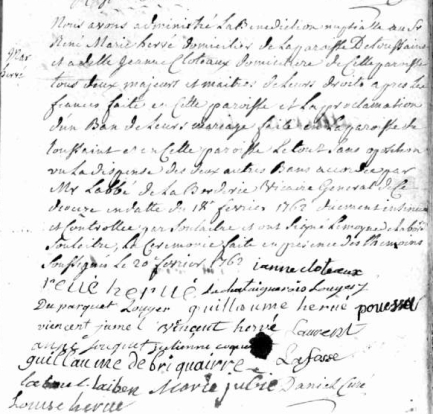 Nous avons administré La Benediction nuptialle au Sr
René Marie hervé domicilier de La paroisse De toussaint
et a delle Jeanne Cloteaux domiciliere de Cette paroisse
tous deux majeurs et maitres de Leurs droits apres Les
fiances faite en Cette paroisse et La proclamation
d'un Ban de Leurs mariage faite en La paroisse de
toussaint et en Cette paroisse Le tout Sans oposition
vu La dispense des deux autres Bans accordée par
Mr Labbé de La Vicaire General de Ce
en datte du 18e fevrier 1762
et Controllée par et ont Signé
La Ceremonie faite en présence des themoins
Soussignés Le 20 fevrier 1762 ianne cloteaux
rene hervé
Du parquet Louyer guillaume hervé poussel
viencent jamel vincent hervé Laurent
anne julienne
guillaume de briquairre Lafasse
Marie julie Daniel Curé
Louise herve